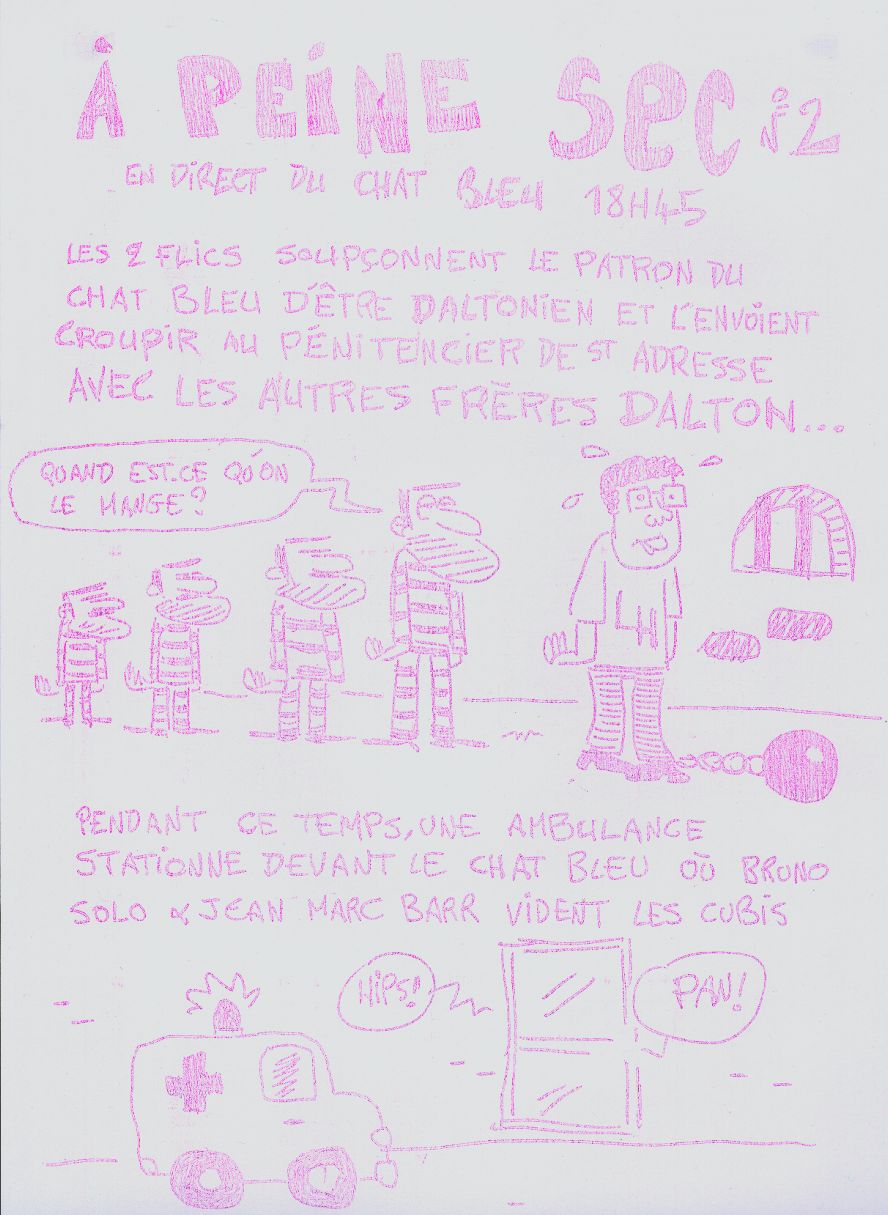 À PEINE SEC N°2
EN DIRECT DU CHAT BLEU 18H45
LES 2 FLICS SOUPÇONNENT LE PATRON DU
CHAT BLEU D'ÊTRE DALTONIEN ET L'ENVOIENT
CROUPIR AU PÉNITENCIER DE ST ADRESSE
AVEC LES AUTRES FRÈRES DALTON...
QUAND EST-CE QU'ON
LE MANGE?
LH
PENDANT CE TEMPS, UNE AMBULANCE
STATIONNE DEVANT LE CHAT BLEU OÙ BRUNO
SOLO & JEAN MARC BARR VIDENT LES CUBIS
HIPS!
PAN!